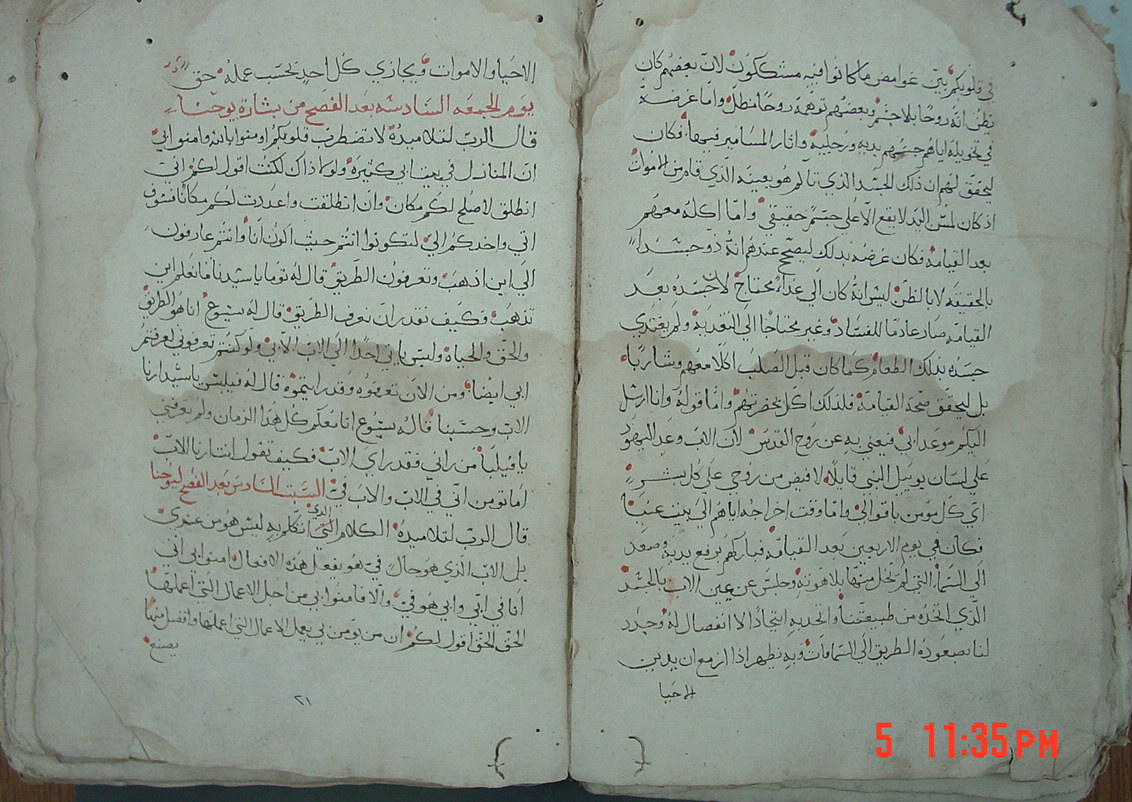 في قلوبكم يبين غوامض ما كانوا فيه متشككون لان بعضهم كان
يظن انه روحًا بلا جسم وبعضهم توهمه روحًا مظل واما غرضه
في تخويله اياهم جسهم يديه ورجليه واثار المسامير فيها فكان
ليحقق لهم ان ذلك الجسد الذي تالم هو بعينه الذي قام من الاموات
اذ كان لمس اليد لا يقع الا على جسم حقيقي واما اكله معهم
بعد القيامه فكان غرضه بذلك ليصحح عندهم انه ذو جسدًا
بالحقيقه لا بالظن ليس انه كان الى غذاء محتاج لان جسده بعد
القيامه صار عادمًا للفساد وغير محتاجًا الى التغديه ولم يغتدي
جسده بذلك الطعام كما كان قبل الصلب اكلا معهم وشاربًا
بل ليحقق صحة القيامه فلذلك اكل بحضرتهم واما قوله وانا ارسل
اليكم موعد ابي فيعني به عن روح القدس لان الاب وعد اليهود
على لسان يوييل النبي قايلًا لافيض من روحي على كل بشر
اي كل مومن باقوالي واما وقت اخراجه اياهم الى بيت عنيا
فكان في يوم الاربعين بعد القيامه فباركهم برفع يديه وصعد
الى السماء التي لم يخل منها بلاهوته وجلس عن يمين الاب بالجسد
الذي اتخذه من طبيعتنا واتحد به اتحادًا لا انفصال له وجدد
لنا بصعوده الطريق الى السماوات وبه نظهر اذا ازمع ان يدين
الاحيا
الاحيا والاموات ويجازي كل احدٍ بحسب عمله حق
يوم الجمعه السادسه بعد الفصح من بشارة يوحنا
قال الرب لتلاميذه لا تضطرب قلوبكم اومنوا بالله وامنوا بي
ان المنازل في بيت ابي كثيره ولولا ذاك لكنت اقول لكم اني
انطلق لاصلح لكم مكان وان انطلقت واعددت لكم مكانًا فسوف
اتي واخدكم اليّ لتكونوا انتم حيث اكون انا وانتم عارفون
الى اين اذهب وتعرفون الطريق قال له توما يا سيد ما نعلم اين
تذهب وكيف نقدر ان نعرف الطريق قال له يسوع انا هو الطريق
والحق والحياه وليس ياتي احدًا الى الاب الا بي ولو كنتم تعرفوني لعرفتم
ابي ايضًا ومن الان تعرفوه وقد رايتموه قال له فيلبس يا سيد ارنا
الاب وحسبنا قال له يسوع انا معكم كل هذا الزمان ولم تعرفني
يا فيلبس من راني فقد راي الاب فكيف تقول انت ارنا الاب
اما تومن اني في الاب والاب فيّ السبت السادس بعد الفصح ليوحنا
قال الرب لتلاميذه الكلام الذي اتكلم به ليس هو من عندي
بل الاب الذي هو حال فيّ هو يفعل هذه الافعال امنوا بي اني
انا في ابي وابي هو فيّ والا فامنوا بي من اجل الاعمال التي اعملها
الحق الحق اقول لكم ان من يومن بي يعمل الاعمال التي اعملها وافضل منها
يصنع
٢١
5 11:35PM